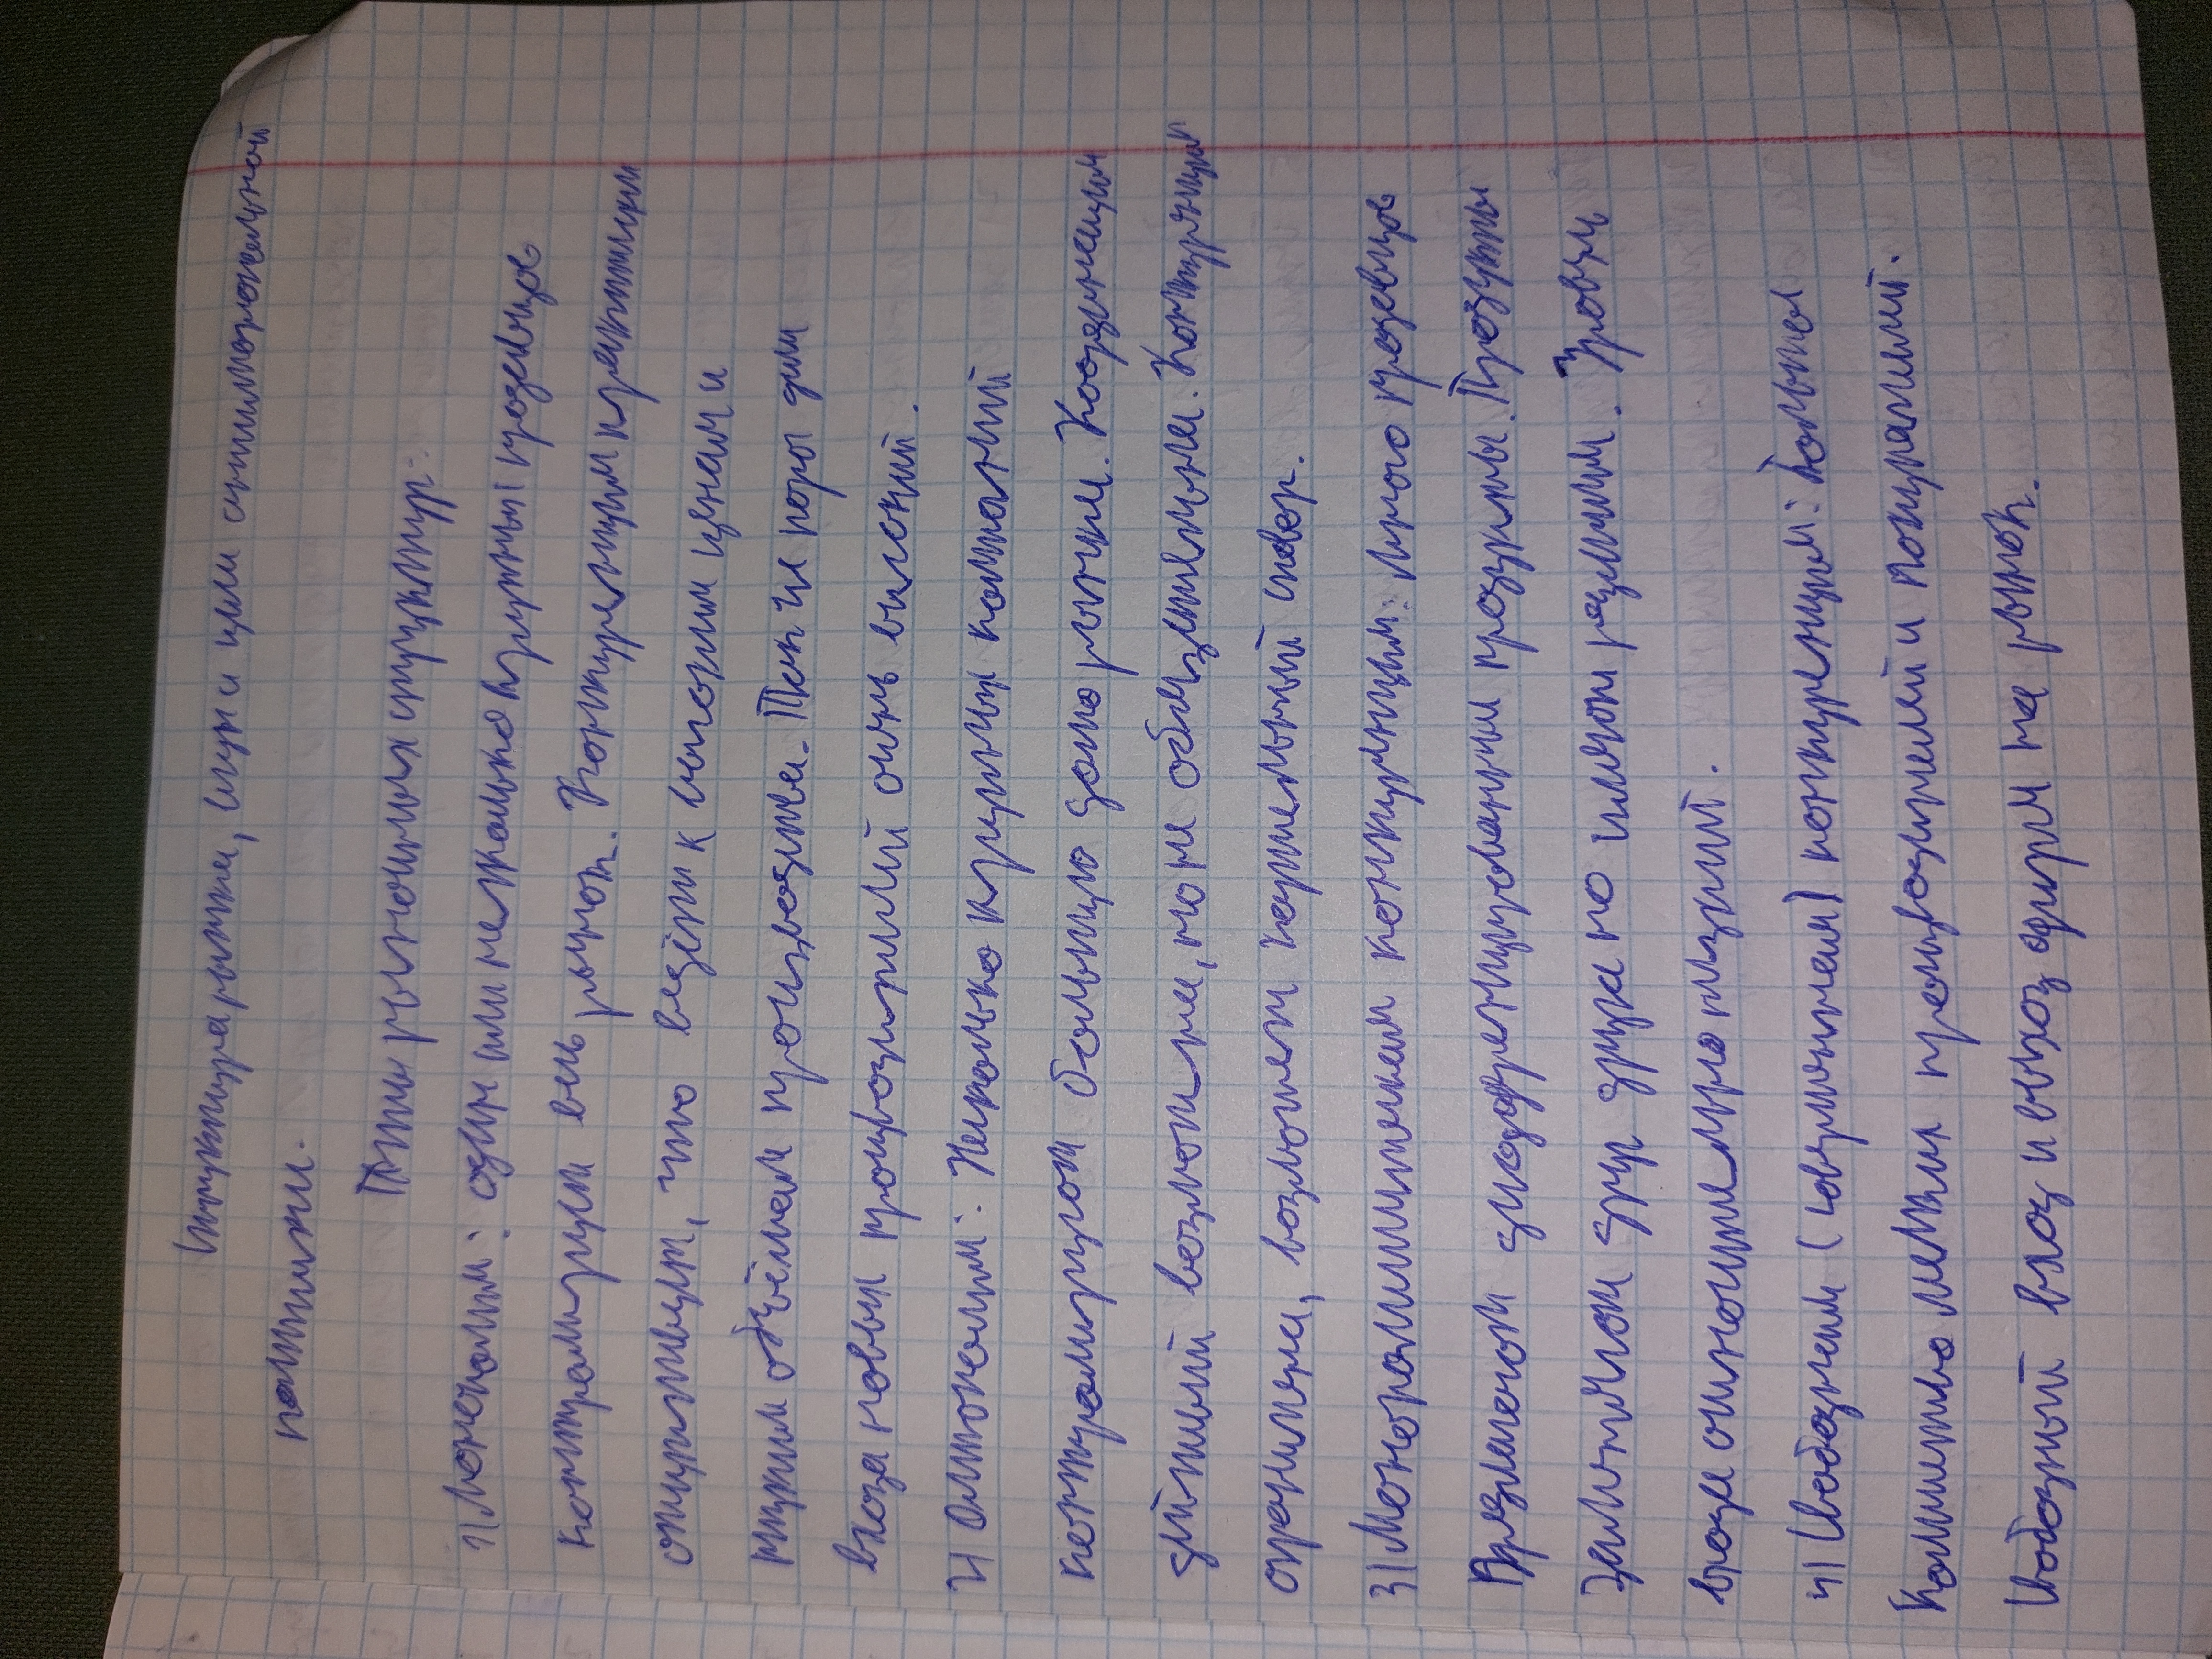 Структура рынка, спрос и цели антимонопольной
политики.
Типы рыночных структур:
1) Монополия: один или несколько крупных продавцов
контролируют весь рынок. Конкуренция практически
отсутствует, что ведёт к высоким ценам и
объёмам производства. Так же барьеры для
входа новых производителей очень высокий.
2) Олигополия: Несколько крупных компаний
контролируют большую долю рынка. Координация
действий возможна, но не обязательна. Конкуренция
ограничена, возможен картельный сговор.
3) Монополистическая конкуренция: Много продавцов
предлагают дифференцированные продукты. Продукты
отличаются друг друга по или. Уровень
входа относительно низкий.
4) Свободная (совершенная) конкуренция: Большое
количество мелких производителей и покупателей.
Свободный вход и выход фирм на рынок.